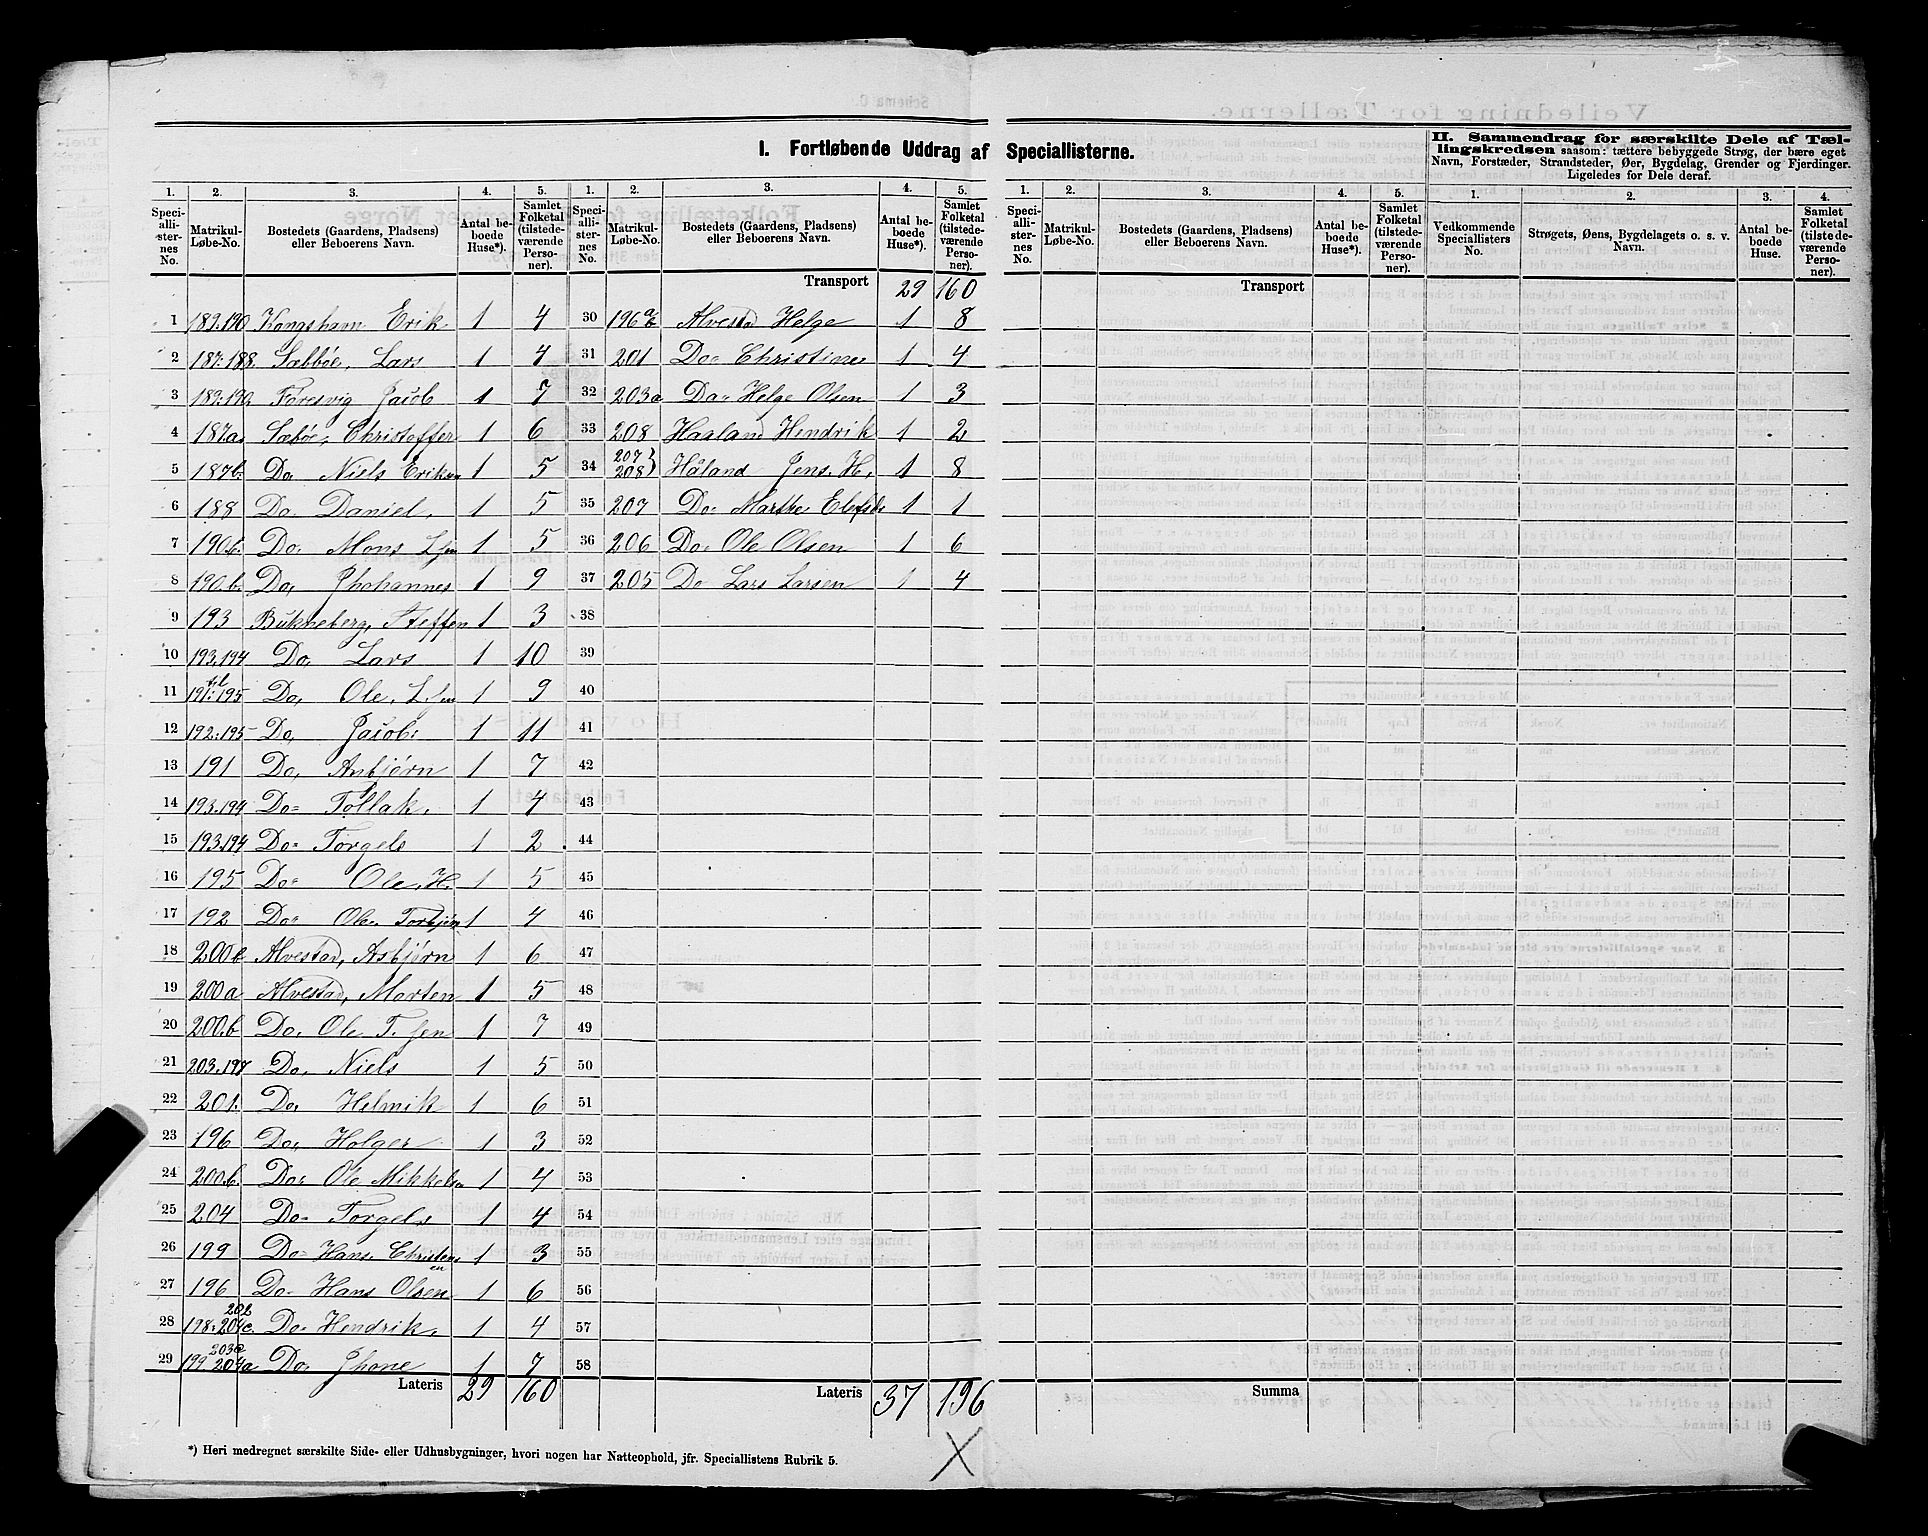 I. Fortløbende Uddrag af Speciallisterne.
II. Sammendrag for særskilte Dele af Tællingskredsen saasom: tættere bebyggede Strøg, der bære eget Navn, Forstæder, Strandsteder, Øer, Bygdelag, Grender og Fjerdinger. Ligeledes for Dele deraf.
1. 2. 3. 4. 5. 1. 2. 3. 4. 5. 1. 2. 3. 4. 5. 1. 2. 3. 4.
Speciallisternes No. Matrikul-Løbe-No. Bostedets (Gaardens, Pladsens) eller Beboerens Navn. Antal beboede Huse*). Samlet Folketal (tilstedeværende Personer).
Speciallisternes No. Matrikul-Løbe-No. Bostedets (Gaardens, Pladsens) eller Beboerens Navn. Antal beboede Huse*). Samlet Folketal (tilstedeværende Personer).
Speciallisternes No. Matrikul-Løbe-No. Bostedets (Gaardens, Pladsens) eller Beboerens Navn. Antal beboede Huse*). Samlet Folketal (tilstedeværende Personer).
Vedkommende Speciallisters No. Strøgets, Øens, Bygdelagets o. s. v. Navn. Antal beboede Huse. Samlet Folketal (tilstedeværende Personer).
1 189.190 Kongsham Erik 1 4
2 187:188. Sæbböe, Lars 1 4
3 189:190. Föresvig Jacob 1 7
4 187a. Sæböe, Christoffer 1 6
5 187b. Do. Niels Eriksen 1 5
6 188 Do. Daniel. 1 5
7 190.b. Do. Mons Lsen 1 5
8 190.b. Do, Jhohannes 1 9
9 193 Bukneberg, Steffen 1 3
10 193.194 Do, Lars 1 10
11 191: til 195 Do, Ole, Lsen 1 9
12 192:195 Do, Jacob: 1 11
13 191 Do, Asbjørn 1 7
14 193.194 Do= Tollak, 1 4
15 193.194 Do= Torgels 1 2
16 195 Do= Ole, H. 1 5
17 192 Do= Ole Torbjörn 1 4
18 200c Alvestad, Asbjørn 1 6
19 200a Alvestad, Morten 1 5
20 200.b Do, Ole T.sen 1 7
21 203.197 Do. Niels 1 5
22 201. Do, Helmik 1 6
23 196 Do, Holger 1 3
24 200.b. Do, Ole Mikkelsen 1 4
25 204 Do= Torgels 1 4
26 199 Do= Hans Christensen 1 3
27 196 Do= Hans Olsen 1 6
28 198: 202 204c. Do= Hendrik. 1 4
29 199. 203c 204a Do, Jhone 1 7
Lateris 29 160
Transport 29 160
30 196 Alvestad Helge 1 8
31 201 Do= Christine 1 4
32 203a Do= Helge Olsen 1 3
33 208 Haaland Hendrik 1 2
34 207 208 Håland Jens. H. 1 8
35 207 Do= Marthe 1 1
36 206 Do= Ole Olsen 1 6
37 205 Do Lars Larsen 1 4
38
39
40
41
42
43
44
45
46
47
48
49
50
51
52
53
54
55
56
57
58
Lateris 37 196
Transport
Summa
*) Heri medregnet særskilte Side- eller Udhusbygninger, hvori nogen har Natteophold, jfr. Speciallistens Rubrik 5.
X